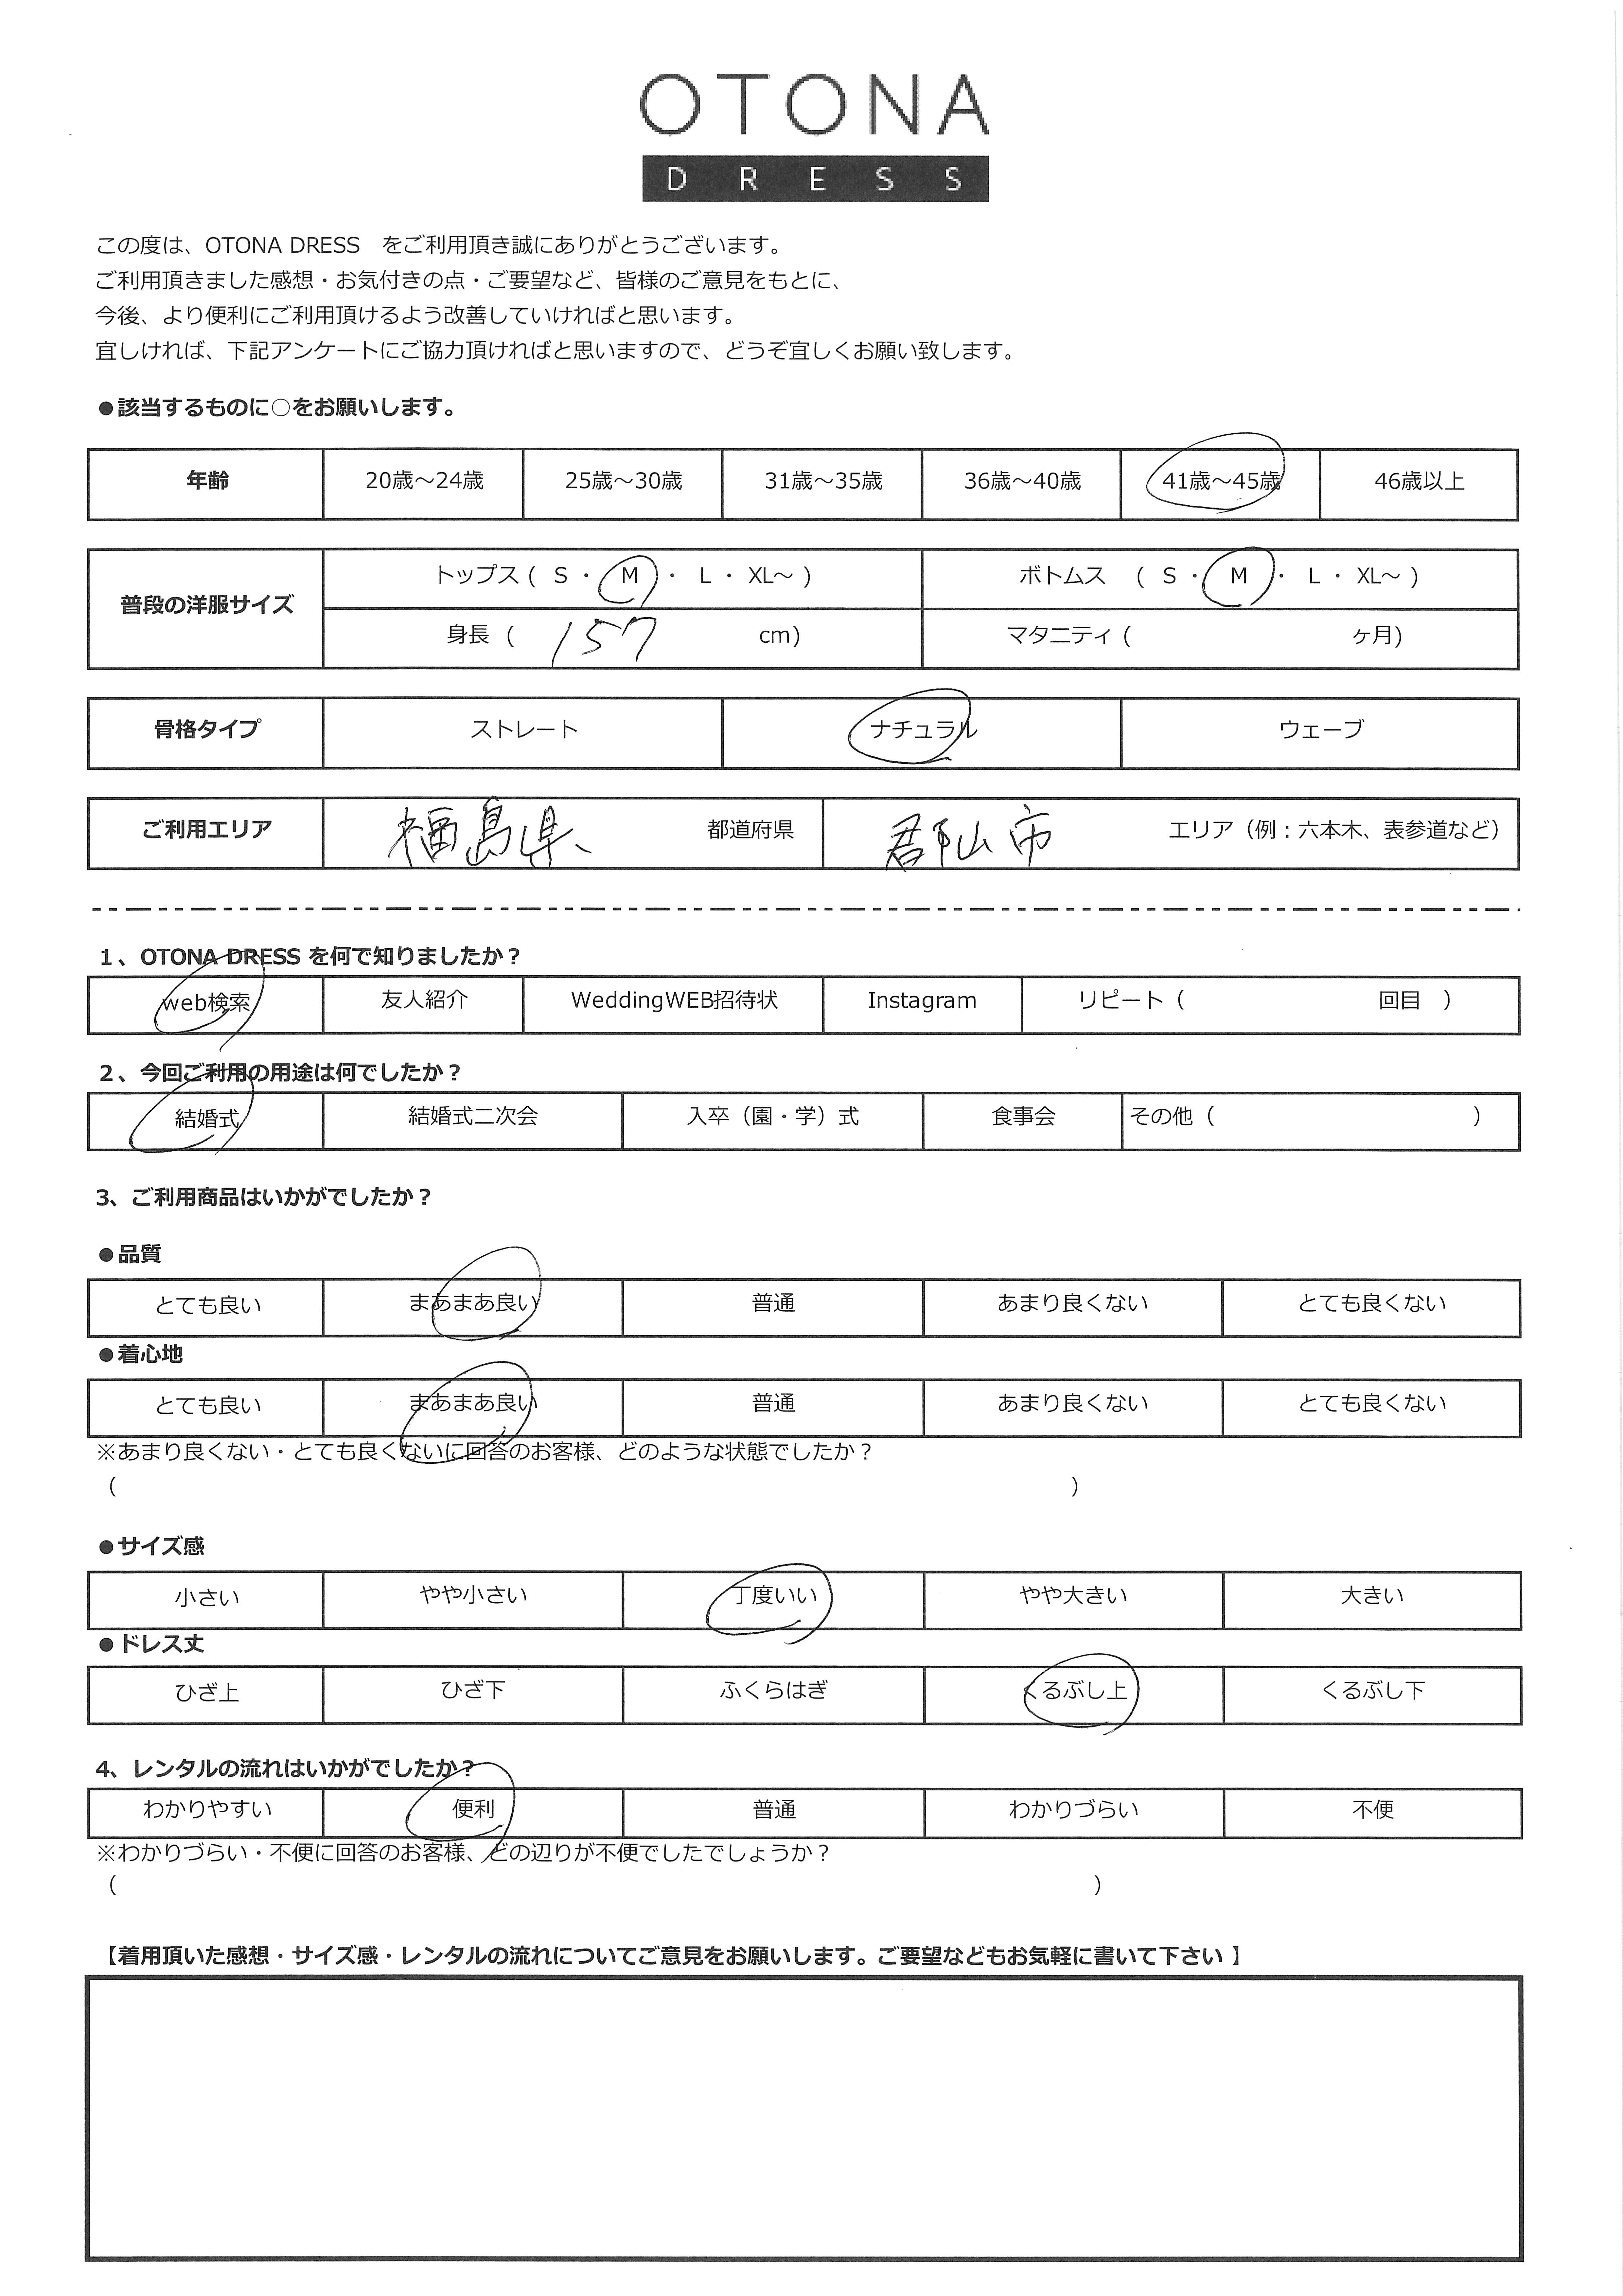 OTONA
DRESS
この度は、OTONA DRESS　をご利用頂き誠にありがとうございます。
ご利用頂きました感想・お気付きの点・ご要望など、皆様のご意見をもとに、
今後、より便利にご利用頂けるよう改善していければと思います。
宜しければ、下記アンケートにご協力頂ければと思いますので、どうぞ宜しくお願い致します。
●該当するものに○をお願いします。
年齢 20歳～24歳 25歳～30歳 31歳～35歳 36歳～40歳 41歳～45歳 46歳以上
普段の洋服サイズ
トップス ( S ・ M ・ L ・ XL～ ) ボトムス ( S ・ M ・ L ・ XL～ )
身長 ( 157 cm) マタニティ ( ヶ月)
骨格タイプ ストレート ナチュラル ウェーブ
ご利用エリア 福島県 都道府県 郡山市 エリア（例：六本木、表参道など）
1、OTONA DRESS を何で知りましたか？
web検索 友人紹介 WeddingWEB招待状 Instagram リピート（ 回目 ）
2、今回ご利用の用途は何でしたか？
結婚式 結婚式二次会 入卒（園・学）式 食事会 その他（ ）
3、ご利用商品はいかがでしたか？
●品質
とても良い まあまあ良い 普通 あまり良くない とても良くない
●着心地
とても良い まあまあ良い 普通 あまり良くない とても良くない
※あまり良くない・とても良くないに回答のお客様、どのような状態でしたか？
（ ）
●サイズ感
小さい やや小さい 丁度いい やや大きい 大きい
●ドレス丈
ひざ上 ひざ下 ふくらはぎ くるぶし上 くるぶし下
4、レンタルの流れはいかがでしたか？
わかりやすい 便利 普通 わかりづらい 不便
※わかりづらい・不便に回答のお客様、どの辺りが不便でしたでしょうか？
（ ）
【着用頂いた感想・サイズ感・レンタルの流れについてご意見をお願いします。ご要望などもお気軽に書いて下さい 】